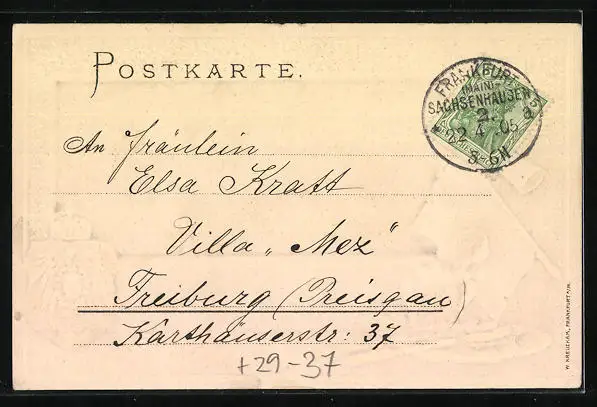 POSTKARTE.
FRANKFURT
(MAIN)-
SACHSENHAUSEN
2.
22.4.05
8-9N
An Fräulein
Elsa Kratt
Villa „Mez"
Freiburg (Breisgau)
Karthäuserstr: 37
+29-37
W. KREUCHAM, FRANKFURT A/M.